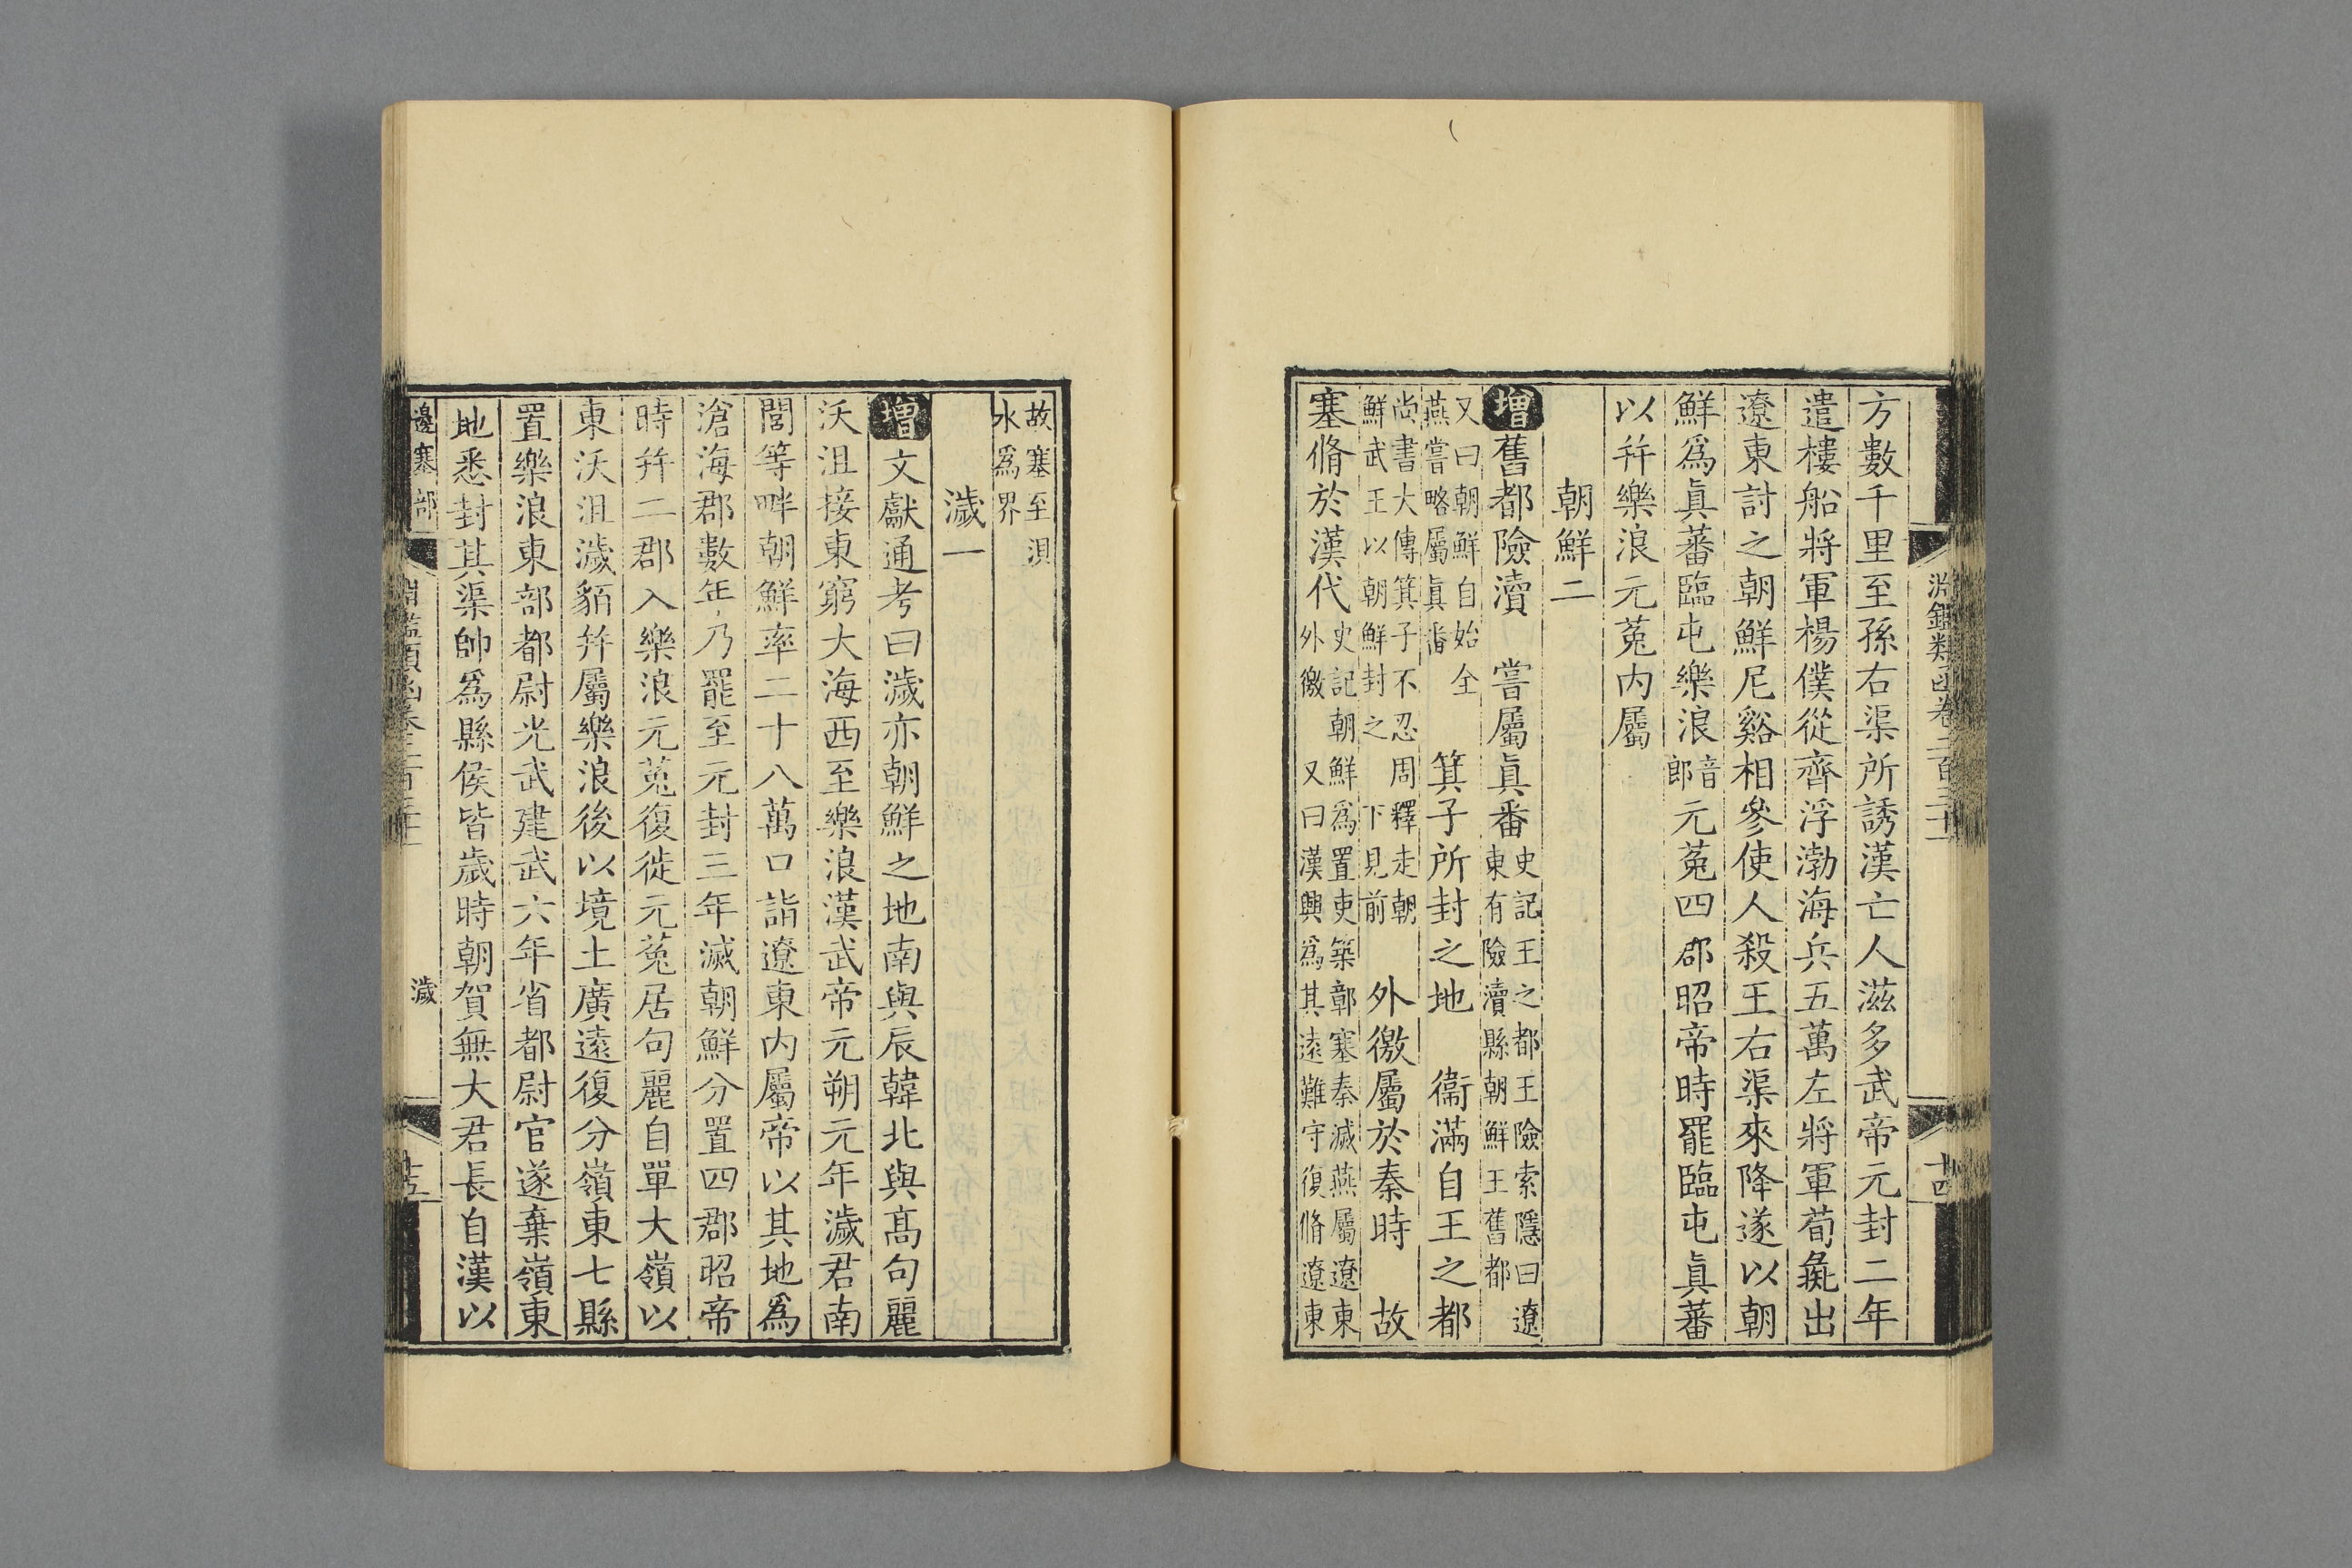 方數千里至孫右渠所誘漢亡人滋多武帝元封二年
遣樓船將軍楊僕從齊浮渤海兵五萬左將軍荀彘出
遼東討之朝鮮尼谿相參使人殺王右渠來降遂以朝
鮮爲眞蕃臨屯樂浪音郎元菟四郡昭帝時罷臨屯眞蕃
以幷樂浪元菟內屬
朝鮮二
增舊都險瀆 嘗屬眞番史記王之都王險索隱曰遼東有險瀆縣朝鮮王舊都
又曰朝鮮自始全燕嘗略屬眞番 箕子所封之地 衞滿自王之都
尚書大傳箕子不忍周釋走朝鮮武王以朝鮮封之 下見前 外徼屬於秦時 故
塞脩於漢代史記朝鮮爲置吏築鄣塞秦滅燕屬遼東外徼 又曰漢興爲其遠難守復脩遼東
淵鑑類函卷二百三十一
十四
故塞至浿水爲界
濊一
增文獻通考曰濊亦朝鮮之地南與辰韓北與高句麗
沃沮接東窮大海西至樂浪漢武帝元朔元年濊君南
閭等畔朝鮮率二十八萬口詣遼東內屬帝以其地爲
滄海郡數年乃罷至元封三年滅朝鮮分置四郡昭帝
時幷二郡入樂浪元菟復徙元菟居句麗自單大嶺以
東沃沮濊貊幷屬樂浪後以境土廣遠復分嶺東七縣
置樂浪東部都尉光武建武六年省都尉官遂棄嶺東
地悉封其渠帥爲縣侯皆歲時朝賀無大君長自漢以
邊塞部
淵鑑類函卷二百三十一
濊
十五